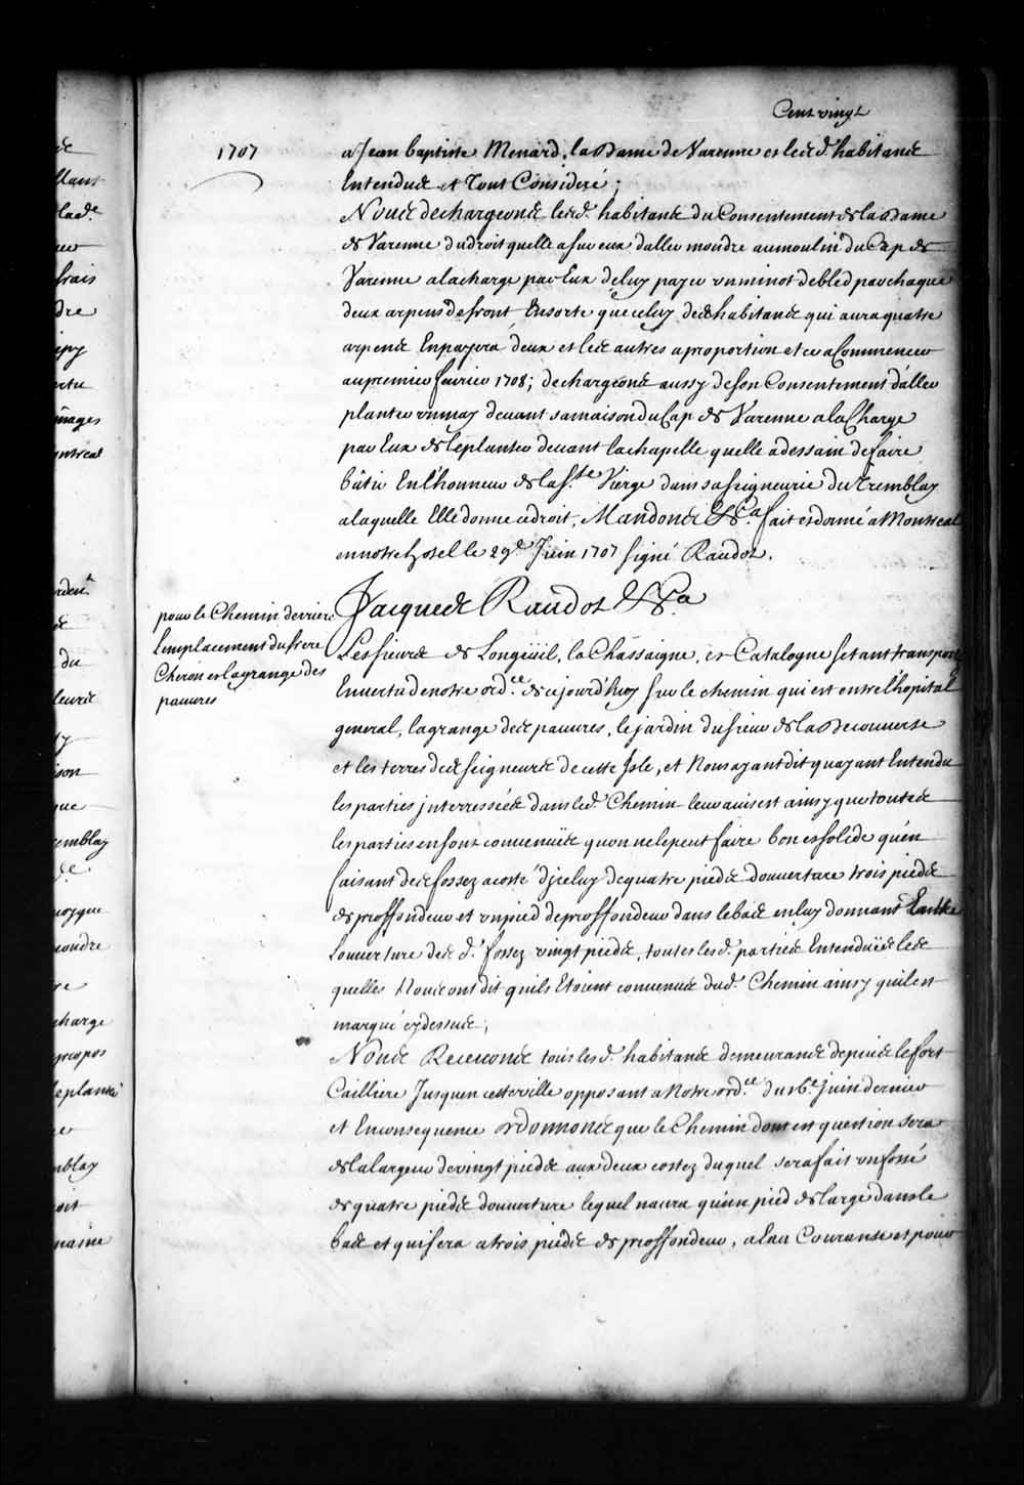 Cent vingt
1707
a Jean baptiste Menard, la Dame de Varenne et lesd. habitans
Entendus et Tout Consideré;
Nous dechargeons lesd. habitans du Consentement de la Dame
de Varenne du droit quelle a sur eux daller moudre au moulin du Cap de
Varenne a la charge par Eux de luy payer un minot de bled par chaque
deux arpens de front Ensorte que celuy desd. habitans qui aura quatre
arpens En payera deux et les autres a proportion et ce a Commencer
au premier fevrier 1708; dechargeons aussy de son Consentement d'aller
planter un may devant sa maison du Cap de Varenne a la Charge
par Eux de le planter devant la chapelle quelle a dessain de faire
bâtir En l'honneur de la Ste. Vierge dans sa seigneurie du Tremblay
a laquelle Elle donne ce droit, Mandons &ca. fait et donné a Montreal
en notre hotel le 29e. Juin 1707 signé Raudot.
Jacques Raudot &ca
pour le Chemin derriere
l'emplacement du frere
Cheron et la grange des
pauvres
Les sieurs de Longüüil, la Chassaigne, et Catalogne setant transporté
En vertu de notre ordce. de cejourd'huy sur le chemin qui est entre l'hopital
general, la grange des pauvres, le jardin du sieur de la Decouverte
et les terres des seigneurs de cette Isle, et Nous ayant dit quayant Entendu
les parties jnterressées dans led. Chemin leur avis est ainsy que toutes
les parties en sont convenuës quon ne le peut faire bon et solide qu'en
faisant des fossez a costé d'jceluy de quatre pieds douverture trois pieds
de proffondeur et un pied de proffondeur dans le bas en luy donnant Entre
Louverture des d. fossez vingt pieds, toutes lesd. parties Entenduës les
quelles Nous ont dit quils Etoient convenus dud. Chemin ainsy quil est
marqué cy dessus;
Nous Recevons tous lesd. habitans demeurans depuis le fort
Cailliere Jusquen cette ville opposant a Notre ordce. du 16e. juin dernier
et En consequence ordonnons que le Chemin dont est question sera
de la largeur de vingt pieds aux deux costez duquel sera fait un fossé
de quatre pieds douverture lequel naura qu'un pied de large dans le
bas et qui sera a trois pieds de proffondeur, a Eau Courante et pour